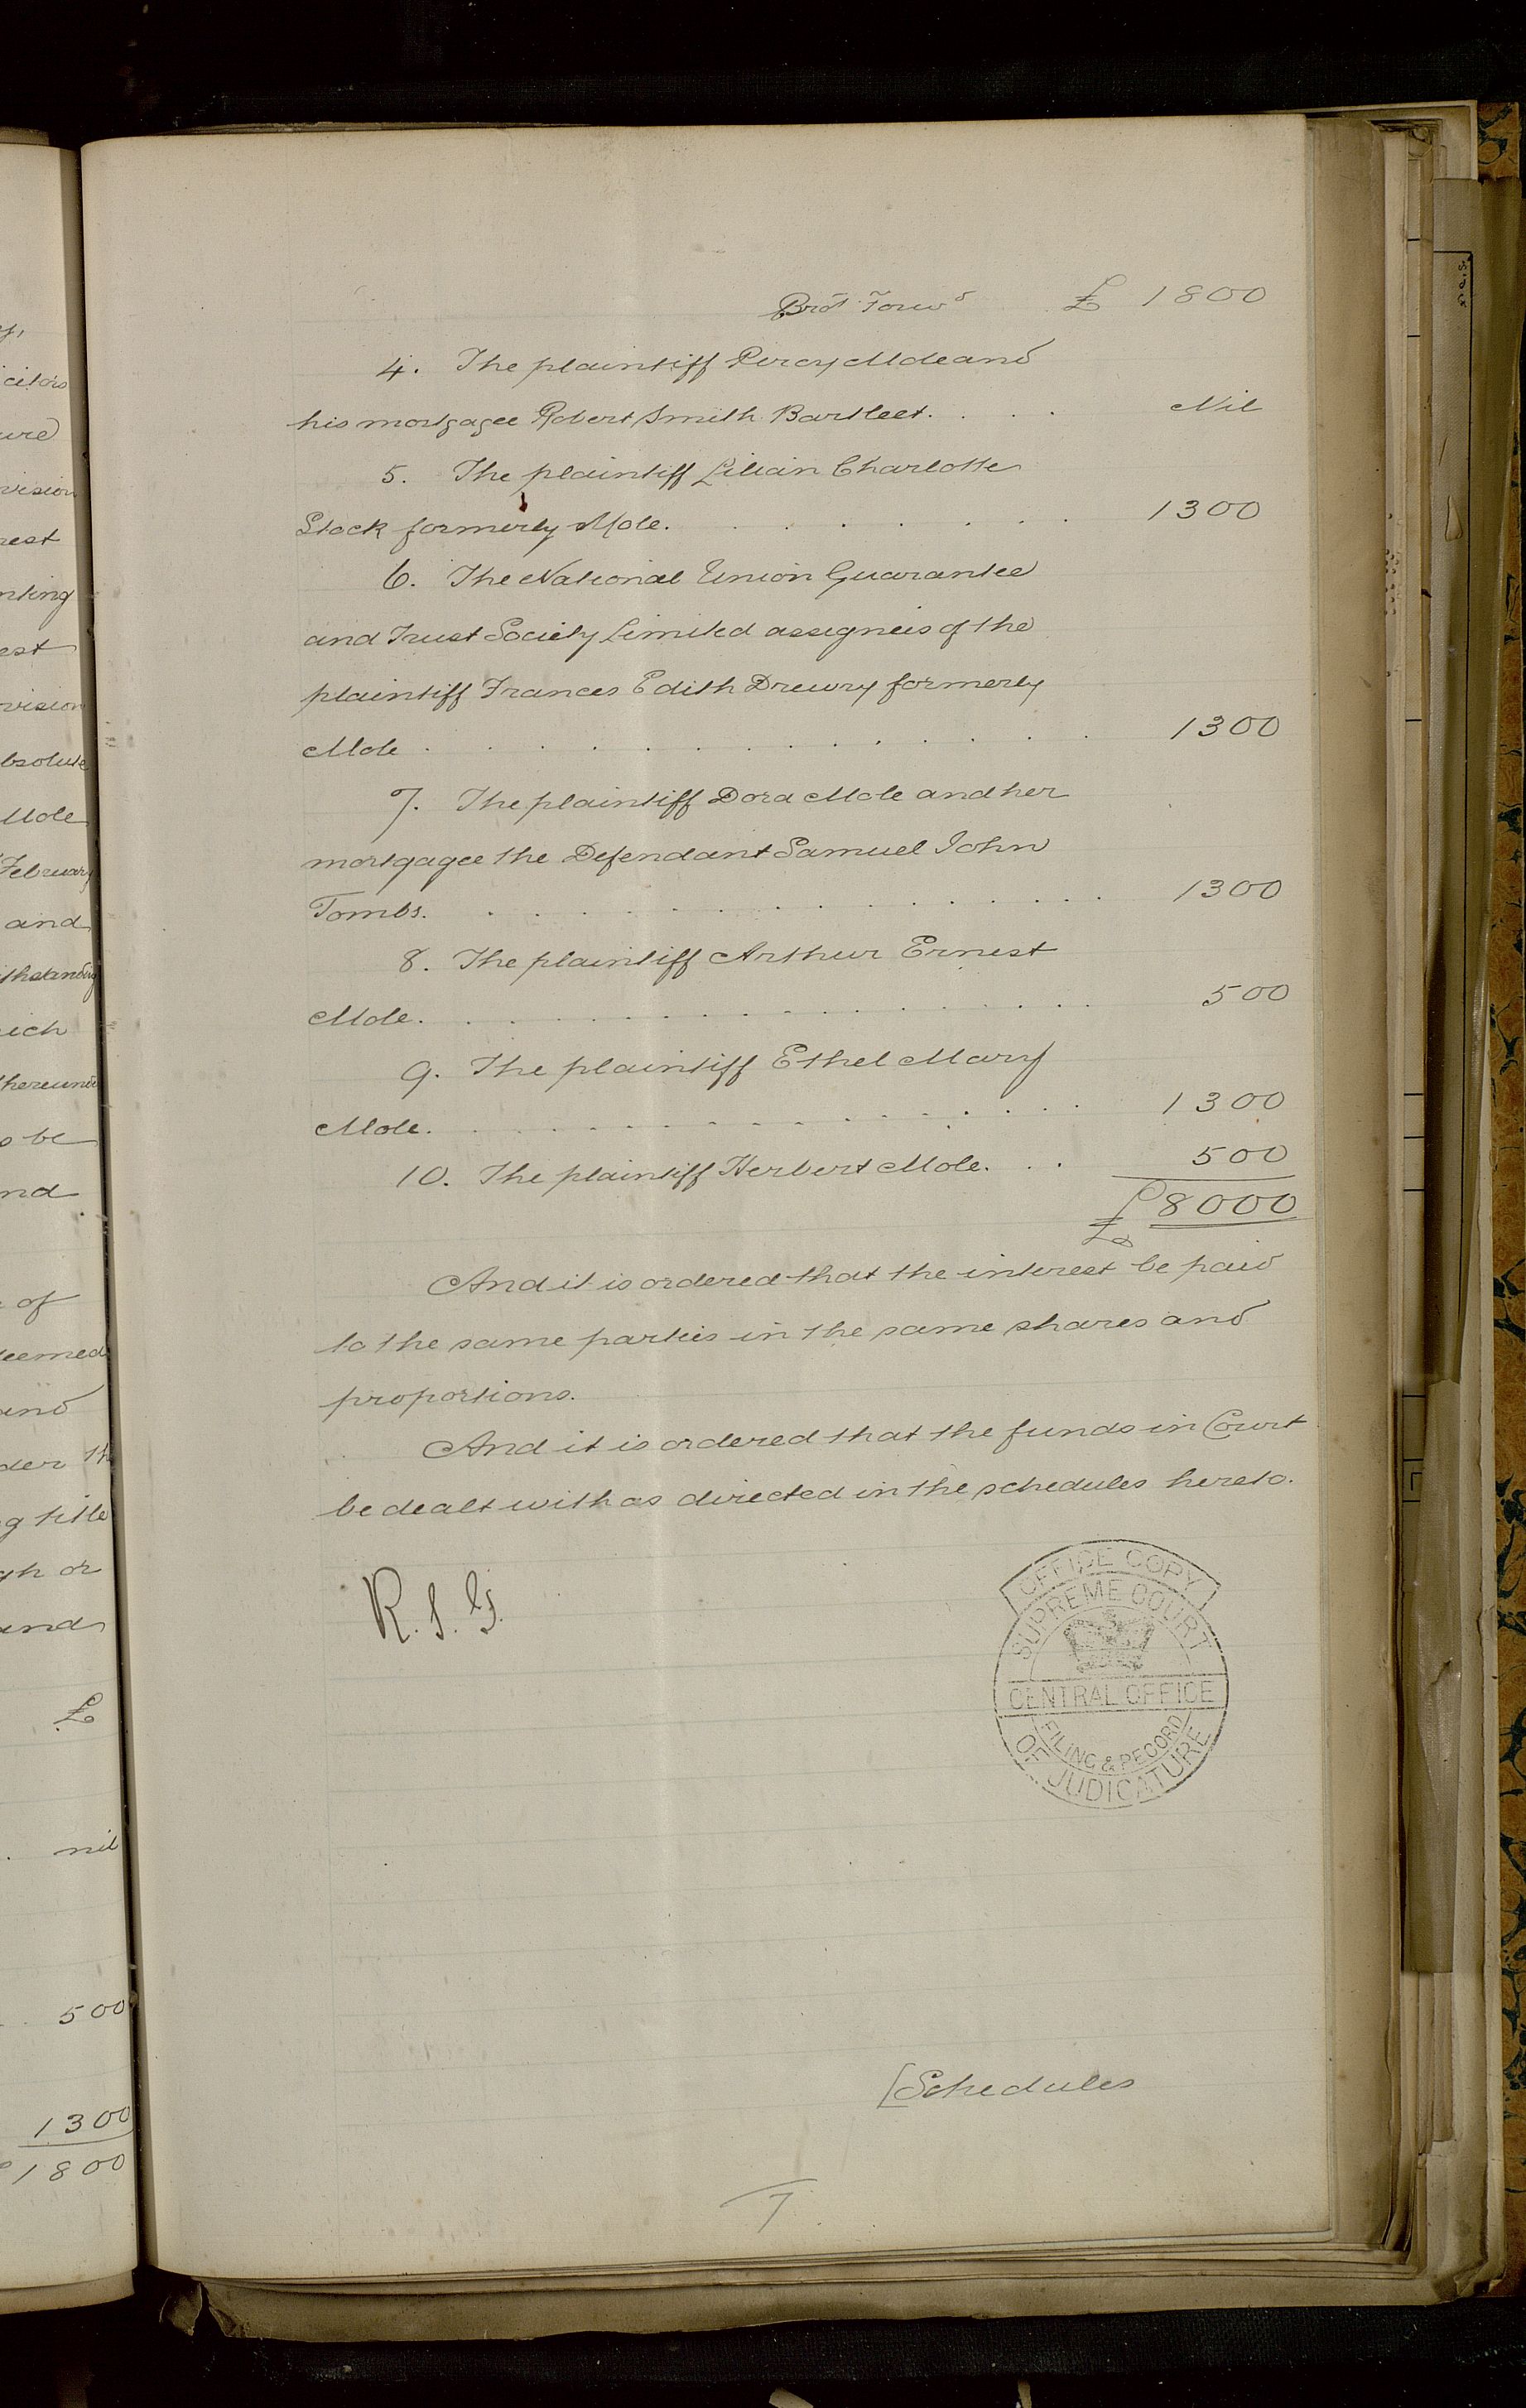 Brot Forwd £ 1800
4. The plaintiff Percy Mole and
his mortgagee Robert Smith Bartleet. . . . Nil
5. The plaintiff Lilian Charlotte
Stock formerly Mole. . . . . . . . 1300
6. The National Union Guarantee
and Trust Society Limited assignees of the
plaintiff Frances Edith Drewry formerly
Mole . . . . . . . . . . . . . 1300
7. The plaintiff Dora Mole and her
mortgagee the Defendant Samuel John
Tombs. . . . . . . . . . . . . 1300
8. The plaintiff Arthur Ernest
Mole. . . . . . . . . . . . . 500
9. The plaintiff Ethel Mary
Mole. . . . . . . . . . . . . 1300
10. The plaintiff Herbert Mole. . . 500
£8000
And it is ordered that the interest be paid
to the same parties in the same shares and
proportions.
And it is ordered that the funds in Court
be dealt with as directed in the schedules hereto.
R. S. G.
OFFICE COPY
SUPREME COURT
CENTRAL OFFICE
FILING & RECORD
OF JUDICATURE
[Schedules
7
citors
ure
vision
rest
nting
est
vision
bsolute
Mole
February
and
thstanding
ich
hereunder
o be
nd
of
eemed
and
der th
g title
gh or
and
£
nil
500
1300
1800